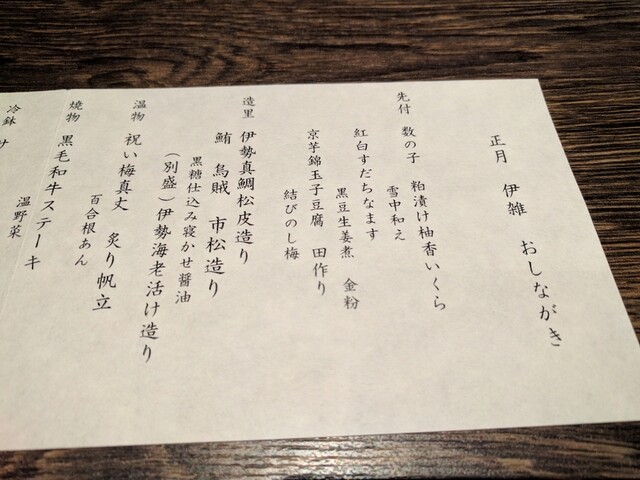 正月　伊雑　おしながき
先付　数の子　粕漬け柚香いくら
雪中和え
紅白すだちなます
黒豆生姜煮　金粉
京芋錦玉子豆腐　田作り
結びのし梅
造里　伊勢真鯛松皮造り
鮪　烏賊　市松造り
黒糖仕込み寝かせ醤油
（別盛）伊勢海老活け造り
温物　祝い梅真丈　炙り帆立
百合根あん
焼物　黒毛和牛ステーキ
温野菜
冷鉢　サ